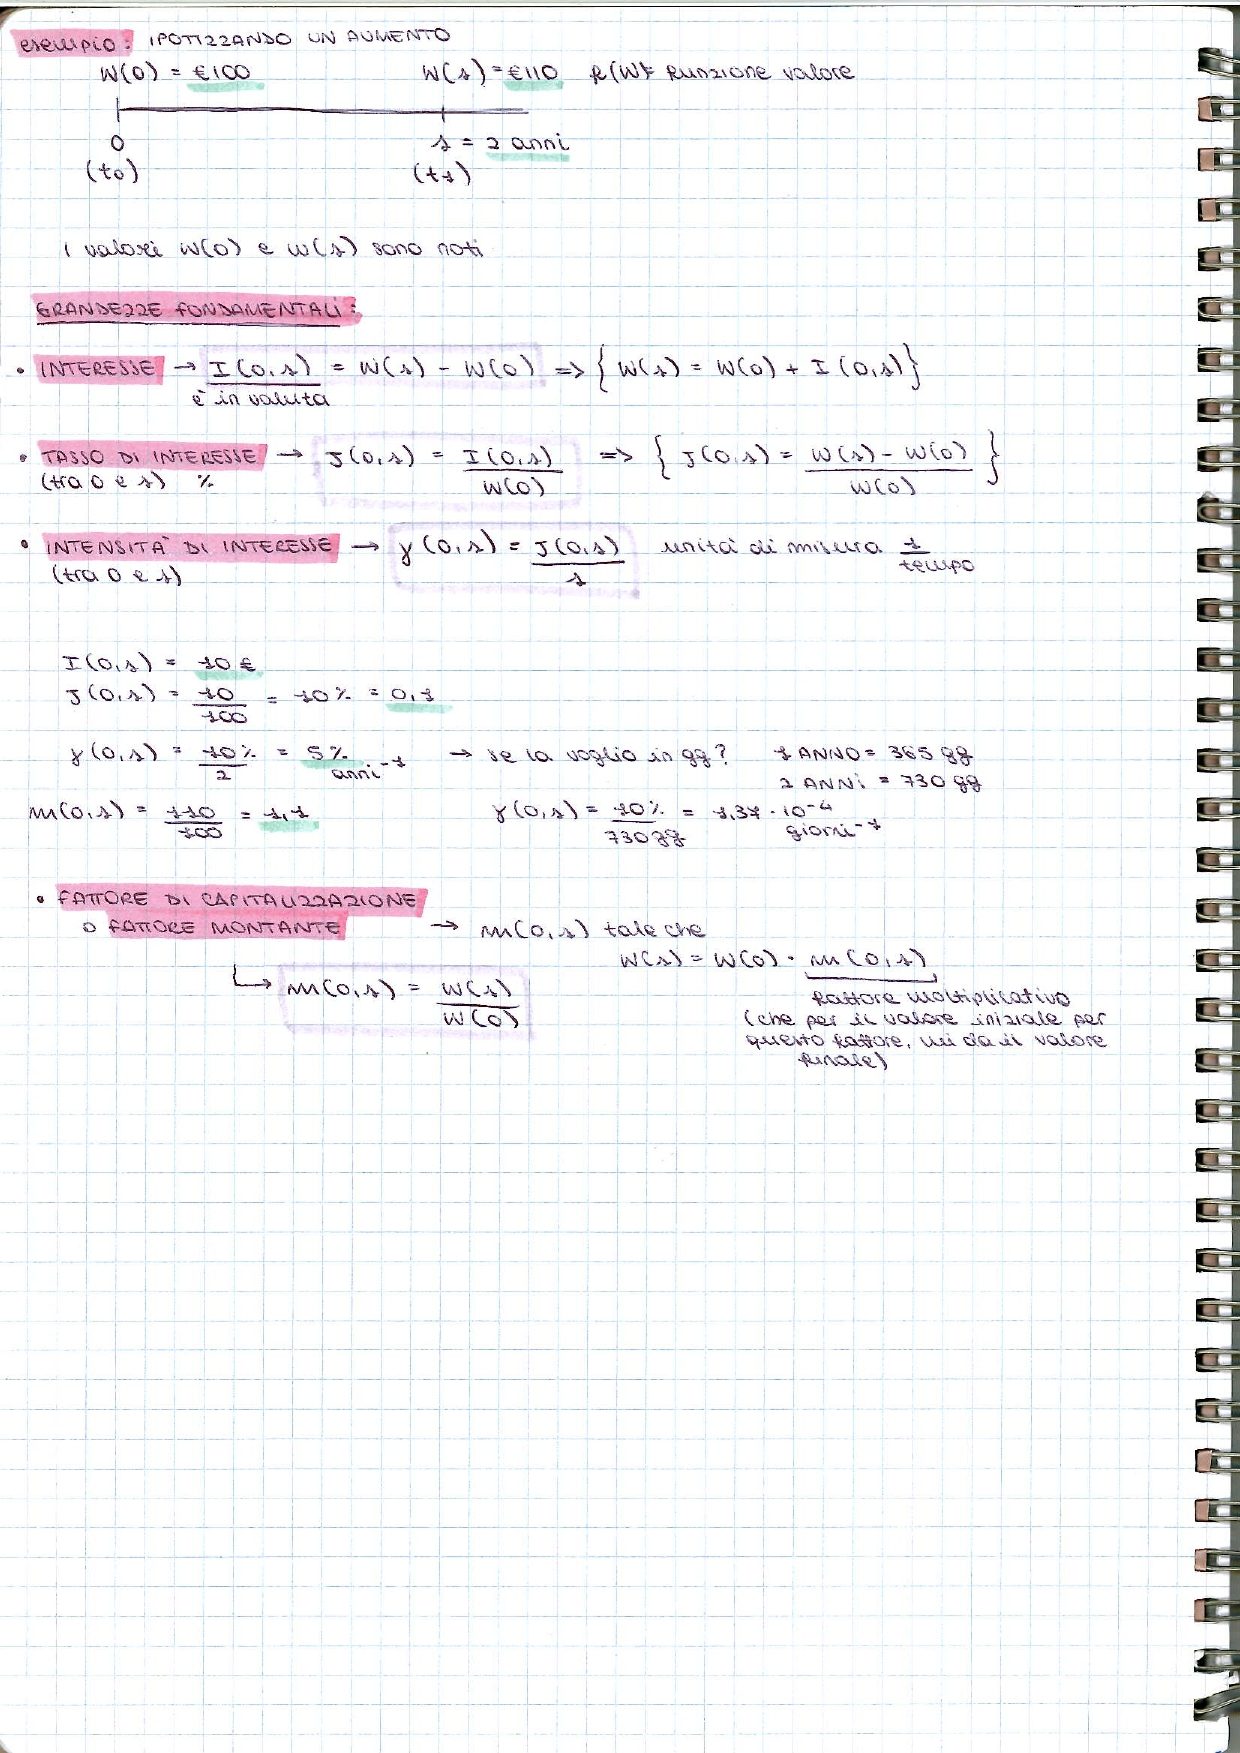 esempio: IPOTIZZANDO UN AUMENTO
W(0) = €100 W(s) = €110 f(W)= funzione valore
0 s = 2 anni
(t0) (t1)
i valori W(0) e W(s) sono noti
GRANDEZZE FONDAMENTALI:
• INTERESSE → I(0,s) = W(s) - W(0) => { W(s) = W(0) + I(0,s) }
è in valuta
• TASSO DI INTERESSE → J(0,s) = I(0,s) / W(0) => { J(0,s) = W(s) - W(0) / W(0) }
(tra 0 e s) %
• INTENSITA' DI INTERESSE → γ(0,s) = J(0,s) / s unità di misura 1 / tempo
(tra 0 e s)
I(0,s) = 10 €
J(0,s) = 10 / 100 = 10% = 0,1
γ(0,s) = 10% / 2 = 5% anni⁻¹ → se la voglio in gg? 1 ANNO = 365 gg
2 ANNI = 730 gg
m(0,s) = 110 / 100 = 1,1 γ(0,s) = 10% / 730 gg = 1,37 · 10⁻⁴ giorni⁻¹
• FATTORE DI CAPITALIZZAZIONE
O FATTORE MONTANTE → m(0,s) tale che
W(s) = W(0) · m(0,s)
↳ m(0,s) = W(s) / W(0)
fattore moltiplicativo
(che per il valore iniziale per
questo fattore, mi da il valore
finale)